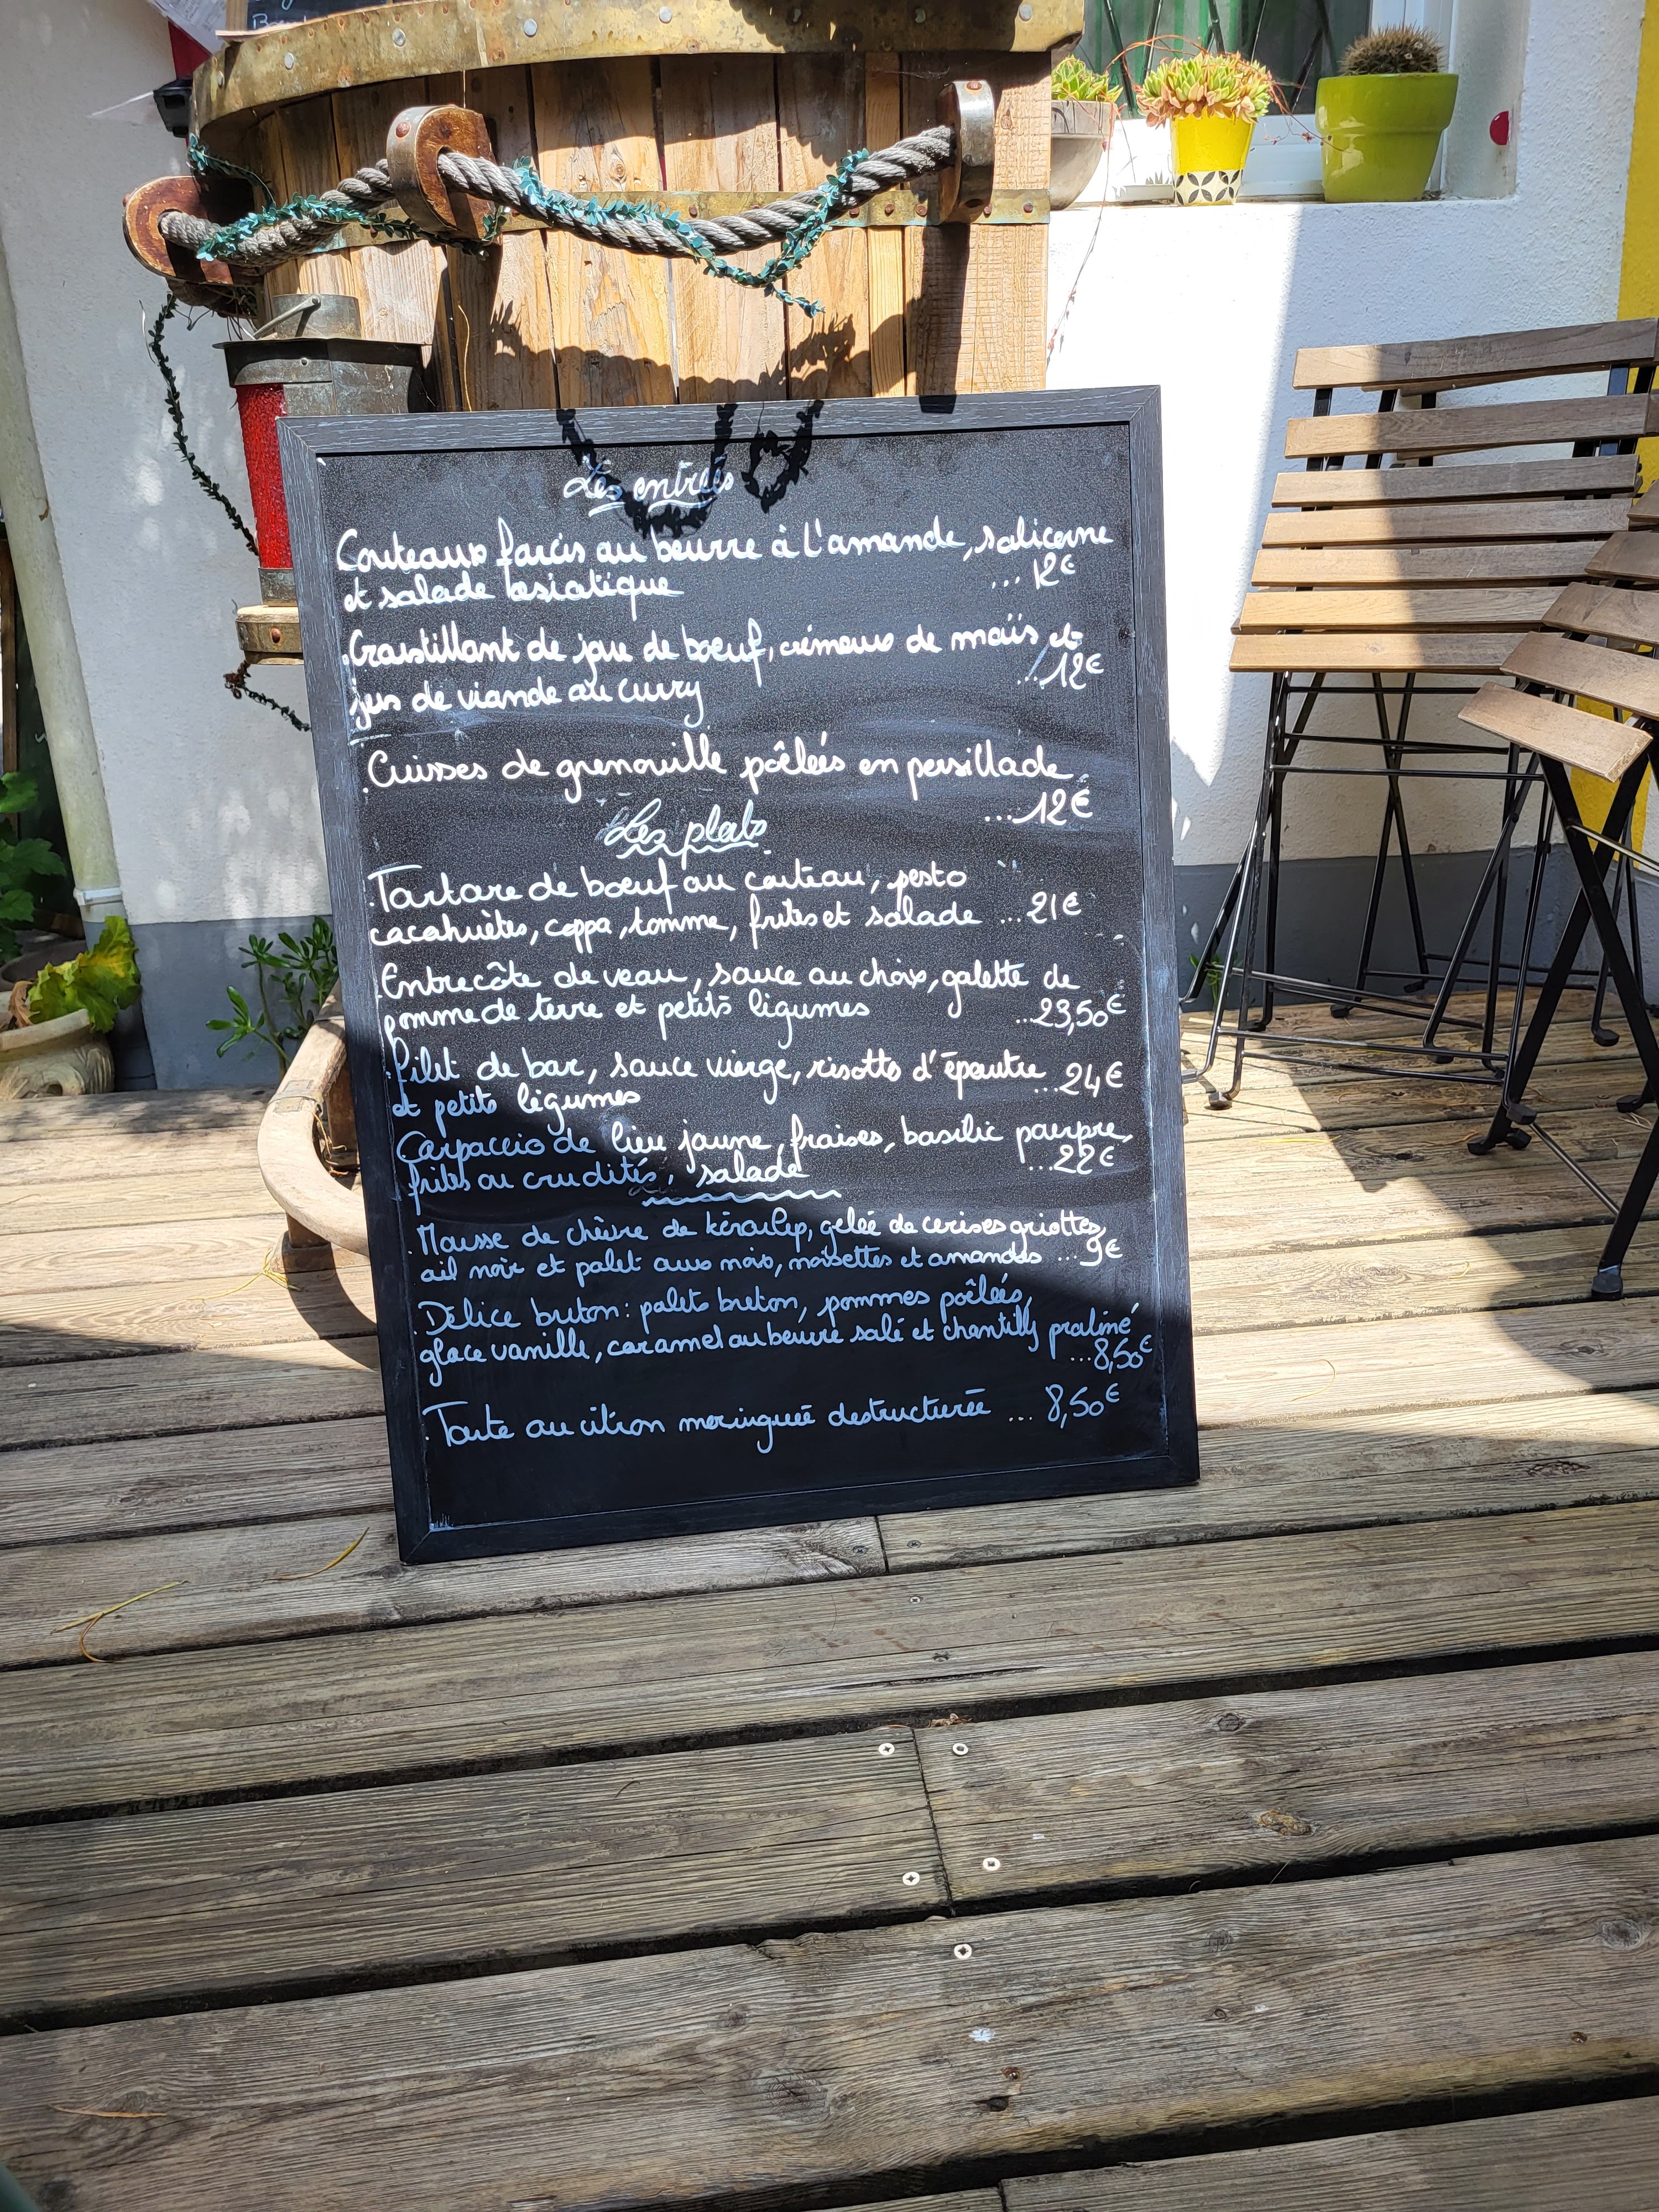 Les entrées
Couteaux farcis au beurre à l'amande, salicorne
et salade asiatique ... 12€
. Croustillant de joue de boeuf, crémeux de maïs et
jus de viande au curry ... 12€
. Cuisses de grenouille pôêlées en persillade
... 12€
Les plats
. Tartare de boeuf au couteau, pesto
cacahuètes, coppa, tomme, frites et salade ... 21€
. Entrecôte de veau, sauce au choix, galette de
pomme de terre et petits légumes ... 23,50€
. Filet de bar, sauce vierge, risotto d'épeautre ... 24€
et petits légumes
Carpaccio de lieu jaune, fraises, basilic pourpre,
frites ou crudités, salade ... 22€
. Mousse de chèvre de, gelée de cerises griottes,
ail noir et palet aux noix, noisettes et amandes ... 9€
. Délice breton : palets breton, pommes poêlées,
glace vanille, caramel au beurre salé et chantilly praliné
... 8,50€
. Tarte au citron meringuée destructurée ... 8,50€